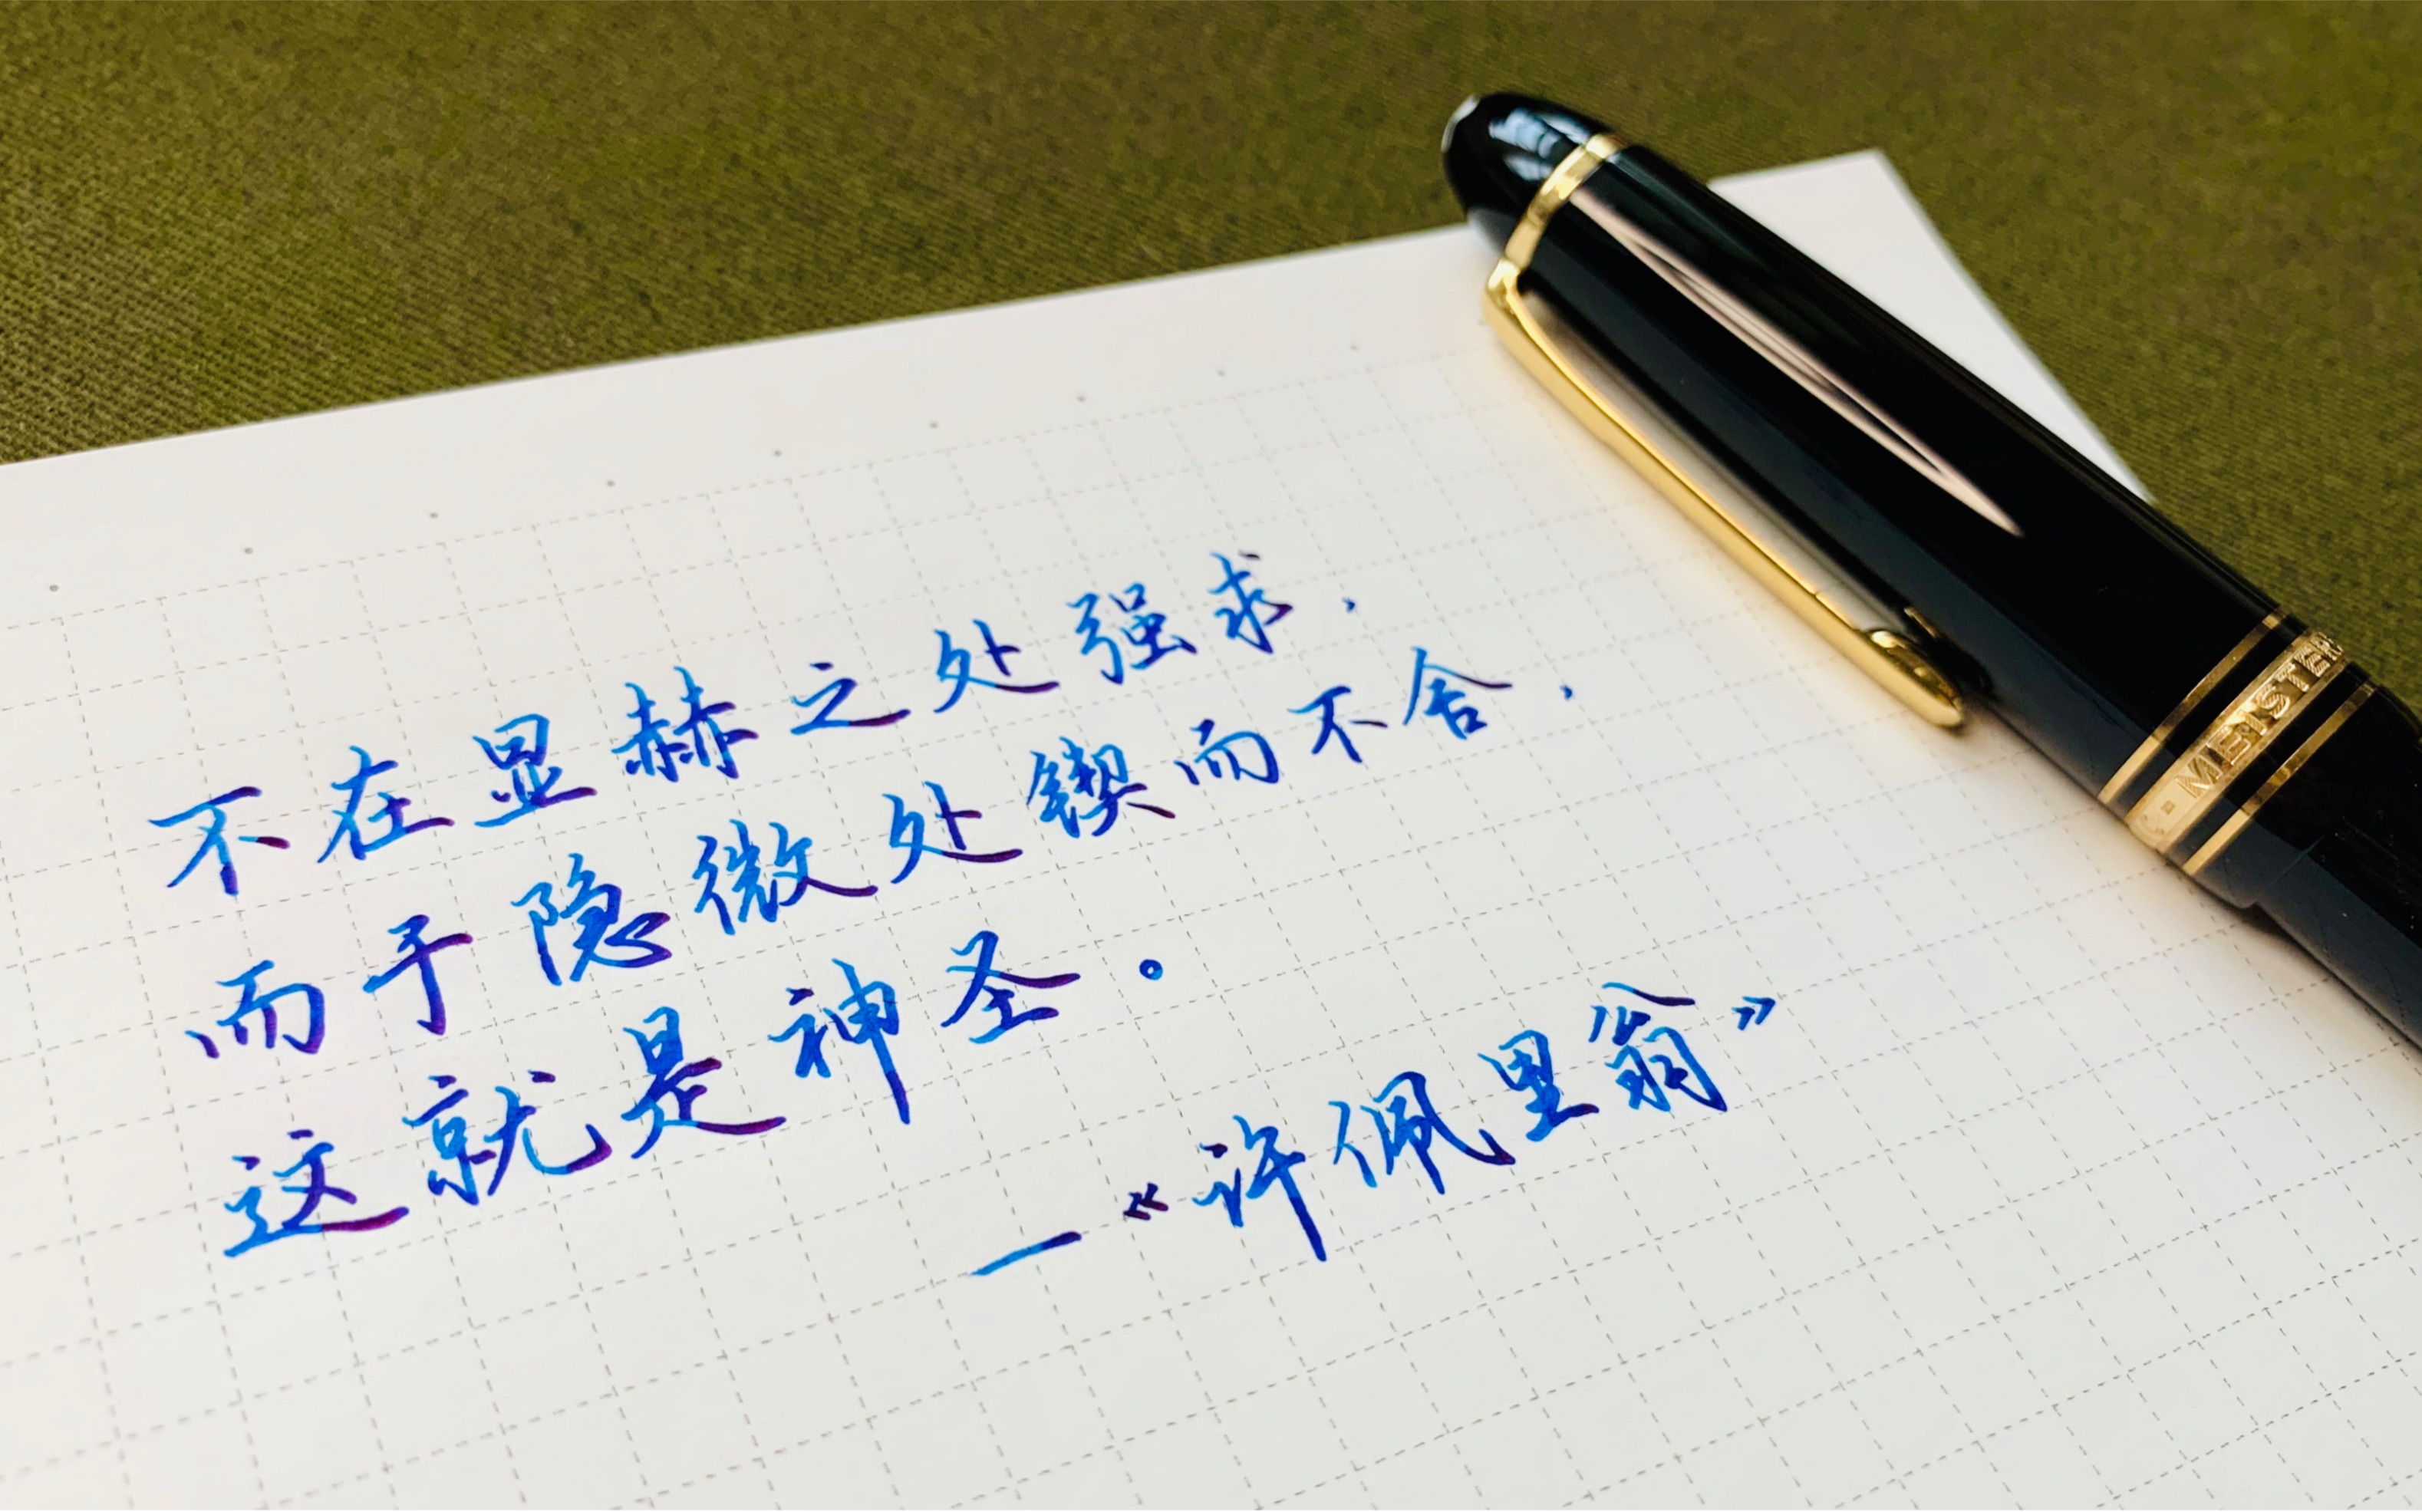 不在显赫之处强求，
而于隐微处锲而不舍，
这就是神圣。
—《许佩里翁》
MEISTER